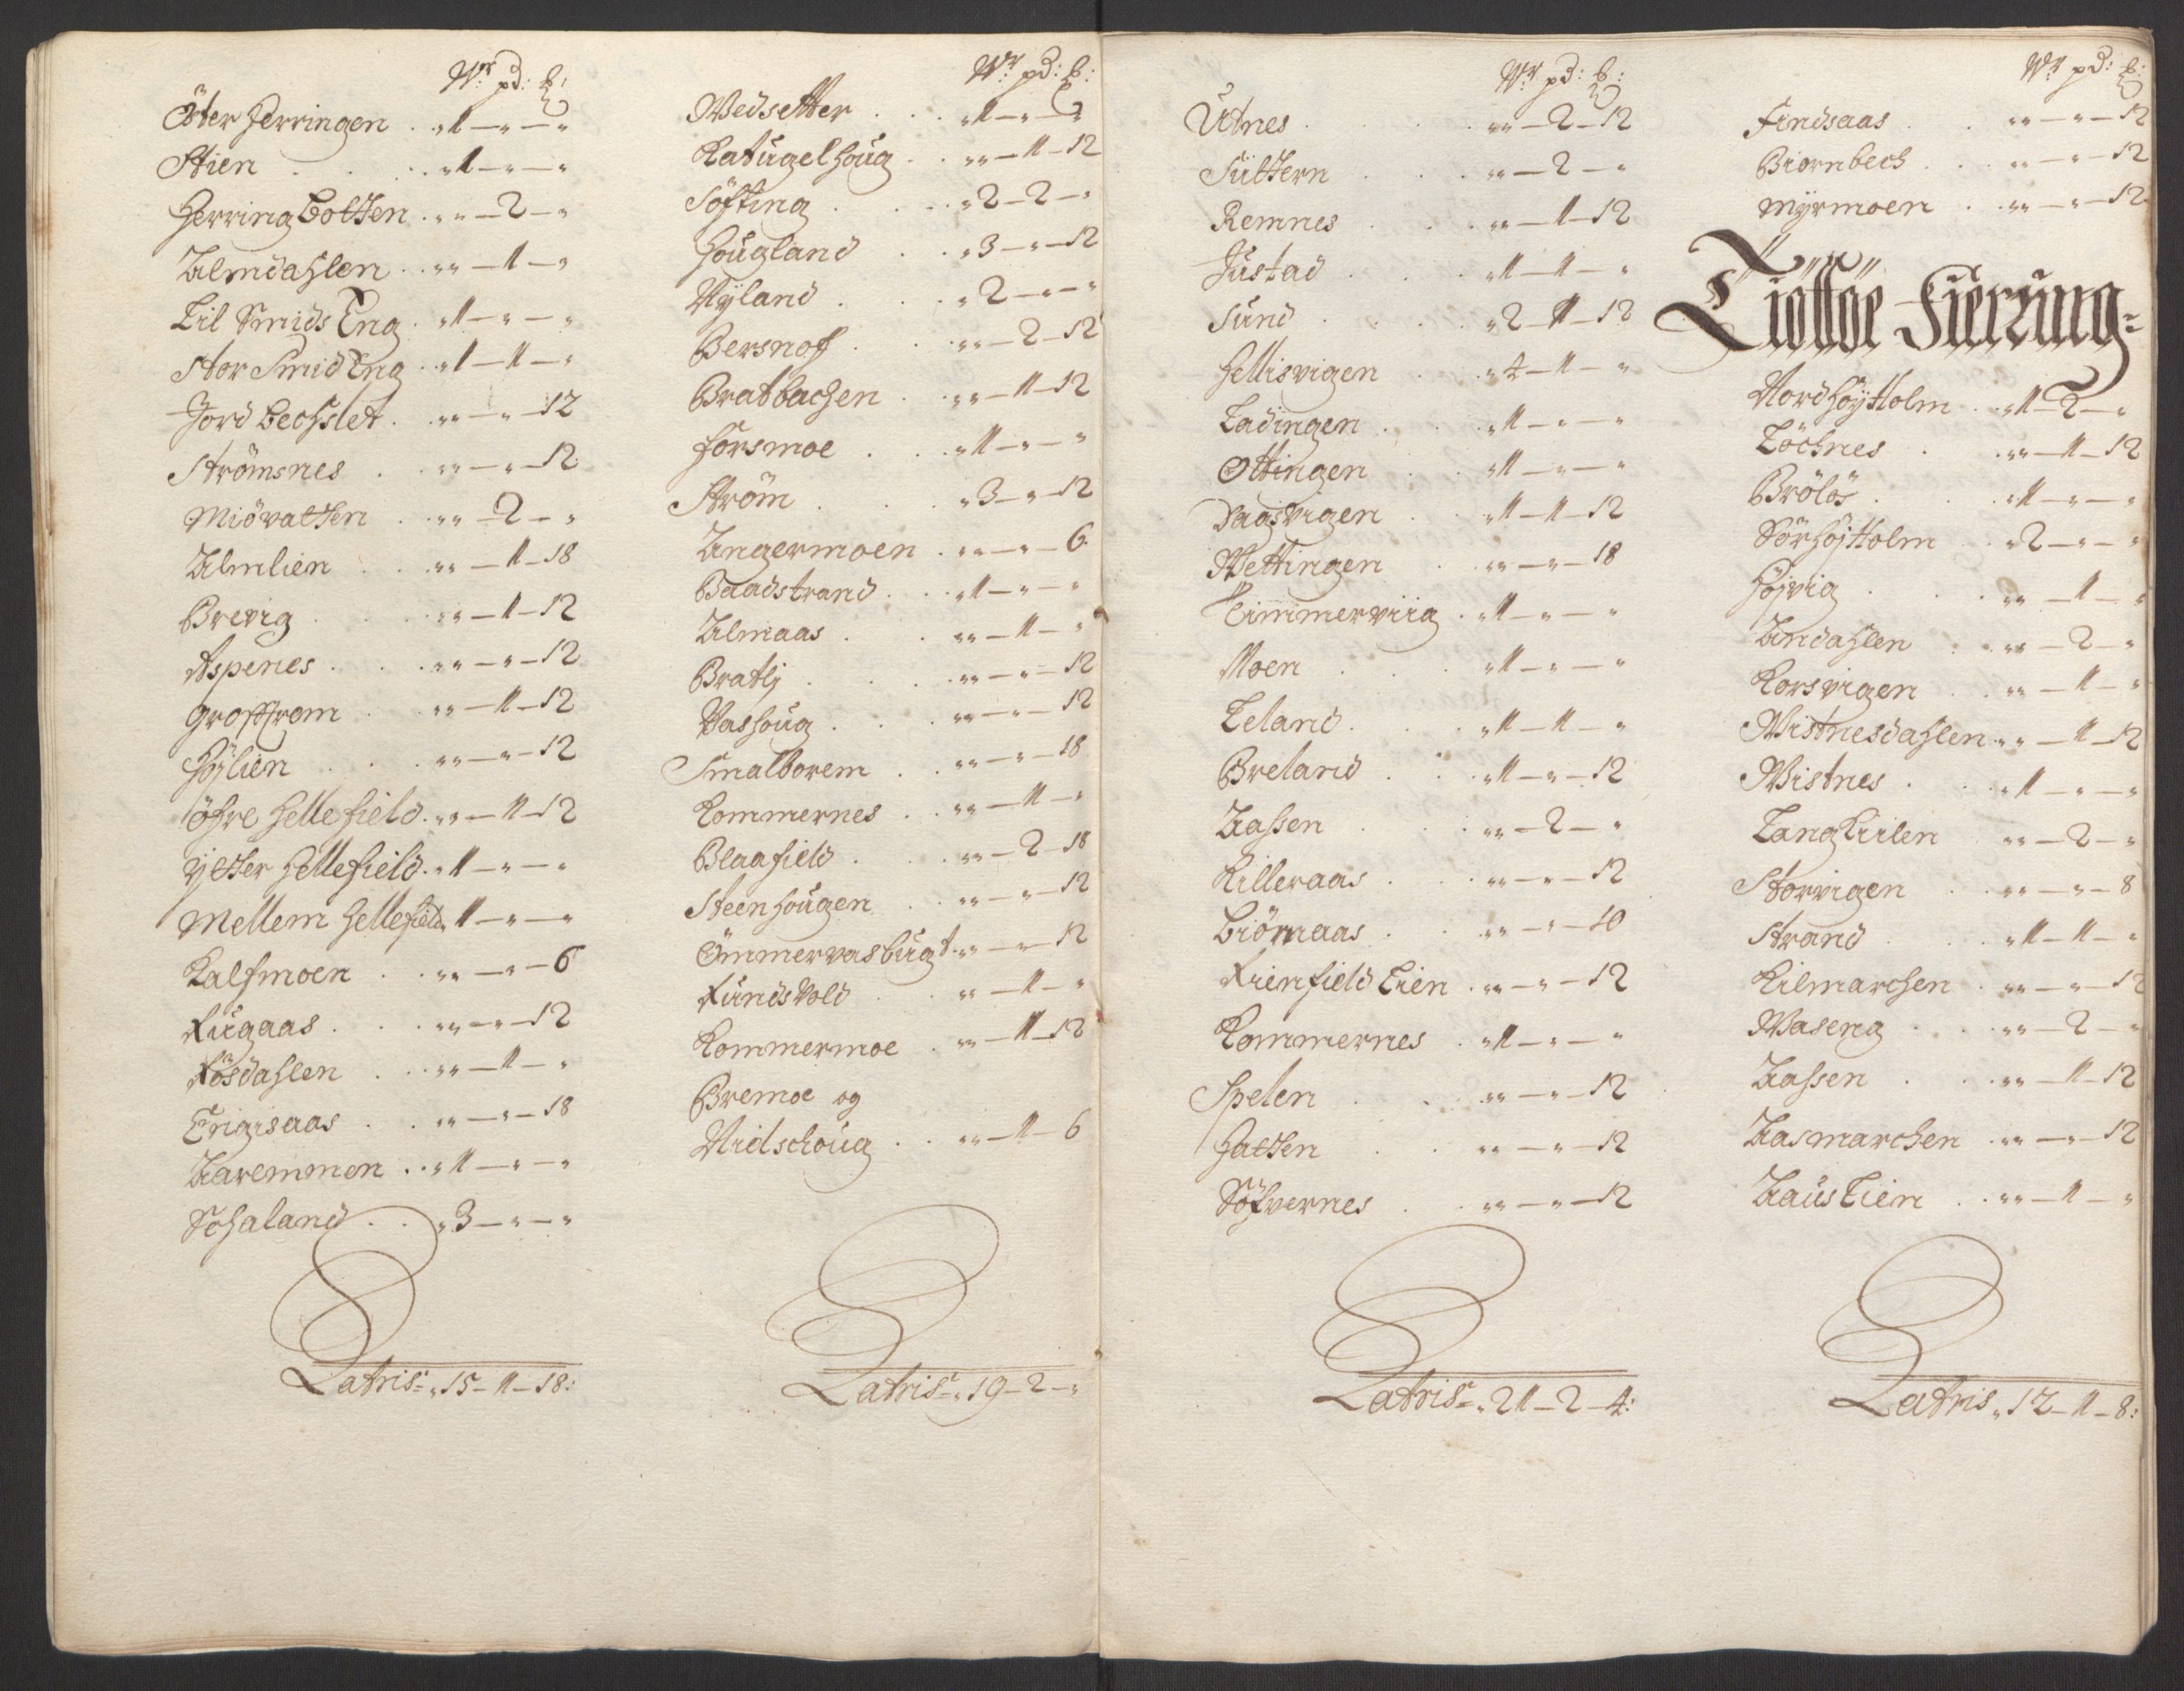 Wr pd: ℔:
Öster Herringen . „1 — „ — „
Stien . . . „1 — „ — „
Herringbotten . „ „ — 2 — „
Almdahlen . „ „ — 1 — „
Lil Smids Eng . „1 — „ — „
Stor Smid Eng . „1 — 1 — „
Jordbechslet . „ „ — „ — 12
Strömsnes . „ „ — „ — 12
Miövatten . „ „ — 2 — „
Almlien . . „ „ — 1 — 18
Brevig . . „ „ — 1 — 12
Aspenes . . „ „ — „ — 12
Groffrem . „ „ — 1 — 12
Höjlien . . „ „ — „ — 12
öfre Hellefield . „ „ — 1 — 12
ÿtter Hellefield . „1 — „ — „
Mellem Hellefield „1 — „ — „
Kalfmoen . „ „ — „ — 6
Rugaas . . „ „ — „ — 12
Rösdahlen . . „ „ — 1 — „
Engisaas . . „ „ — „ — 18
Aaremmen . . „1 — „ — „
Söhaland . . „3 — „ — „
Latris: „15 — 1 — 18:
Wr pd: ℔:
Wedsetter . . . „1 — „ — „
Katugelhoug . . „ „ — 1 — 12
Söfting . . . „2 — 2 — „
Hougland . . „3 — „ — 12
Nÿland . . . „2 — „ — „
Bersnof . . „ „ — 2 — 12
Bratbachen . . „ „ — 1 — 12
Forsmoe . . „1 — „ — „
Ström . . . „3 — „ — 12
Angermoen . „ „ — „ — 6
Baadstrand . . „1 — „ — „
Almaas . . „ „ — 1 — „
Bratlj . . . „ „ — „ — 12
Vashoug . . . „ „ — „ — 12
Smalborem . . „ „ — „ — 18
Kommernes . . „ „ — 1 — „
Blaafield . . „ „ — 2 — 18
Steenhougen . . „ „ — „ — 12
Ömmervasbugt „ „ — „ — 12
Rundsvold . . „ „ — 1 — „
Kommermoe . „ „ — 1 — 12
Bremoe og
Midschoug . . „ „ — 1 — 6
Latris: „19 — 2 — „
Wr pd: ℔:
Utnes . . . „ „ — 2 — 12
Sultern . . . „ „ — 2 — „
Remnes . . „ „ — 1 — 12
Justad . . . „1 — 1 — „
Sund . . . „2 — 1 — 12
Hellisvigen . „2 — 1 — „
Ladingen . . „1 — „ — „
Ottingen . . „1 — „ — „
Vaagsvigen . . „1 — 1 — 12
Wettingen . . „ „ — „ — 18
Timmerviig . „1 — „ — „
Moen . . . „1 — „ — „
Leland . . . „1 — 1 — „
Breland . . „1 — „ — 12
Aassen . . . „ „ — 2 — „
Killeraas . . „ „ — „ — 12
Biörnaas . . „ „ — „ — 10
Rienfield Lien . „ „ — „ — 12
Kommernes . „1 — „ — „
Spelen . . . „ „ — „ — 12
Hatten . . „ „ — „ — 12
Söfvernes . . „ „ — „ — 12
Latris: „21 — 2 — 4:
Wr pd: ℔:
Findsaas . . „ „ — „ — 12
Biornbech . . „ „ — „ — 12
Mÿrmoen . „ „ — „ — 12
Tiöttöe Fierring:
Nordhöÿtolm . „1 — 2 — „
Löchnes . . „ „ — 1 — 12
Brölös . . . „1 — „ — „
Sörhöjtolm . „2 — „ — „
Höjvig . . . „ „ — 1 — „
Andahlen . . „ „ — 2 — „
Korsvigen . . „ „ — 1 — „
Wistnesdahlen „ „ — 1 — 12
Wistnes . . „1 — „ — „
Langkiilen „ „ — 2 — „
Storvigen . „ „ — „ — 8
Strand . . . „1 — 1 — „
Kilmarchen . „ „ — „ — 12
Waseng . . „ „ — 2 — „
Aassen . . „ „ — 1 — 12
Aasmarchen . „ „ — „ — 12
Aaustien . . „ „ — 1 — „
Latris „12 — 1 — 8: